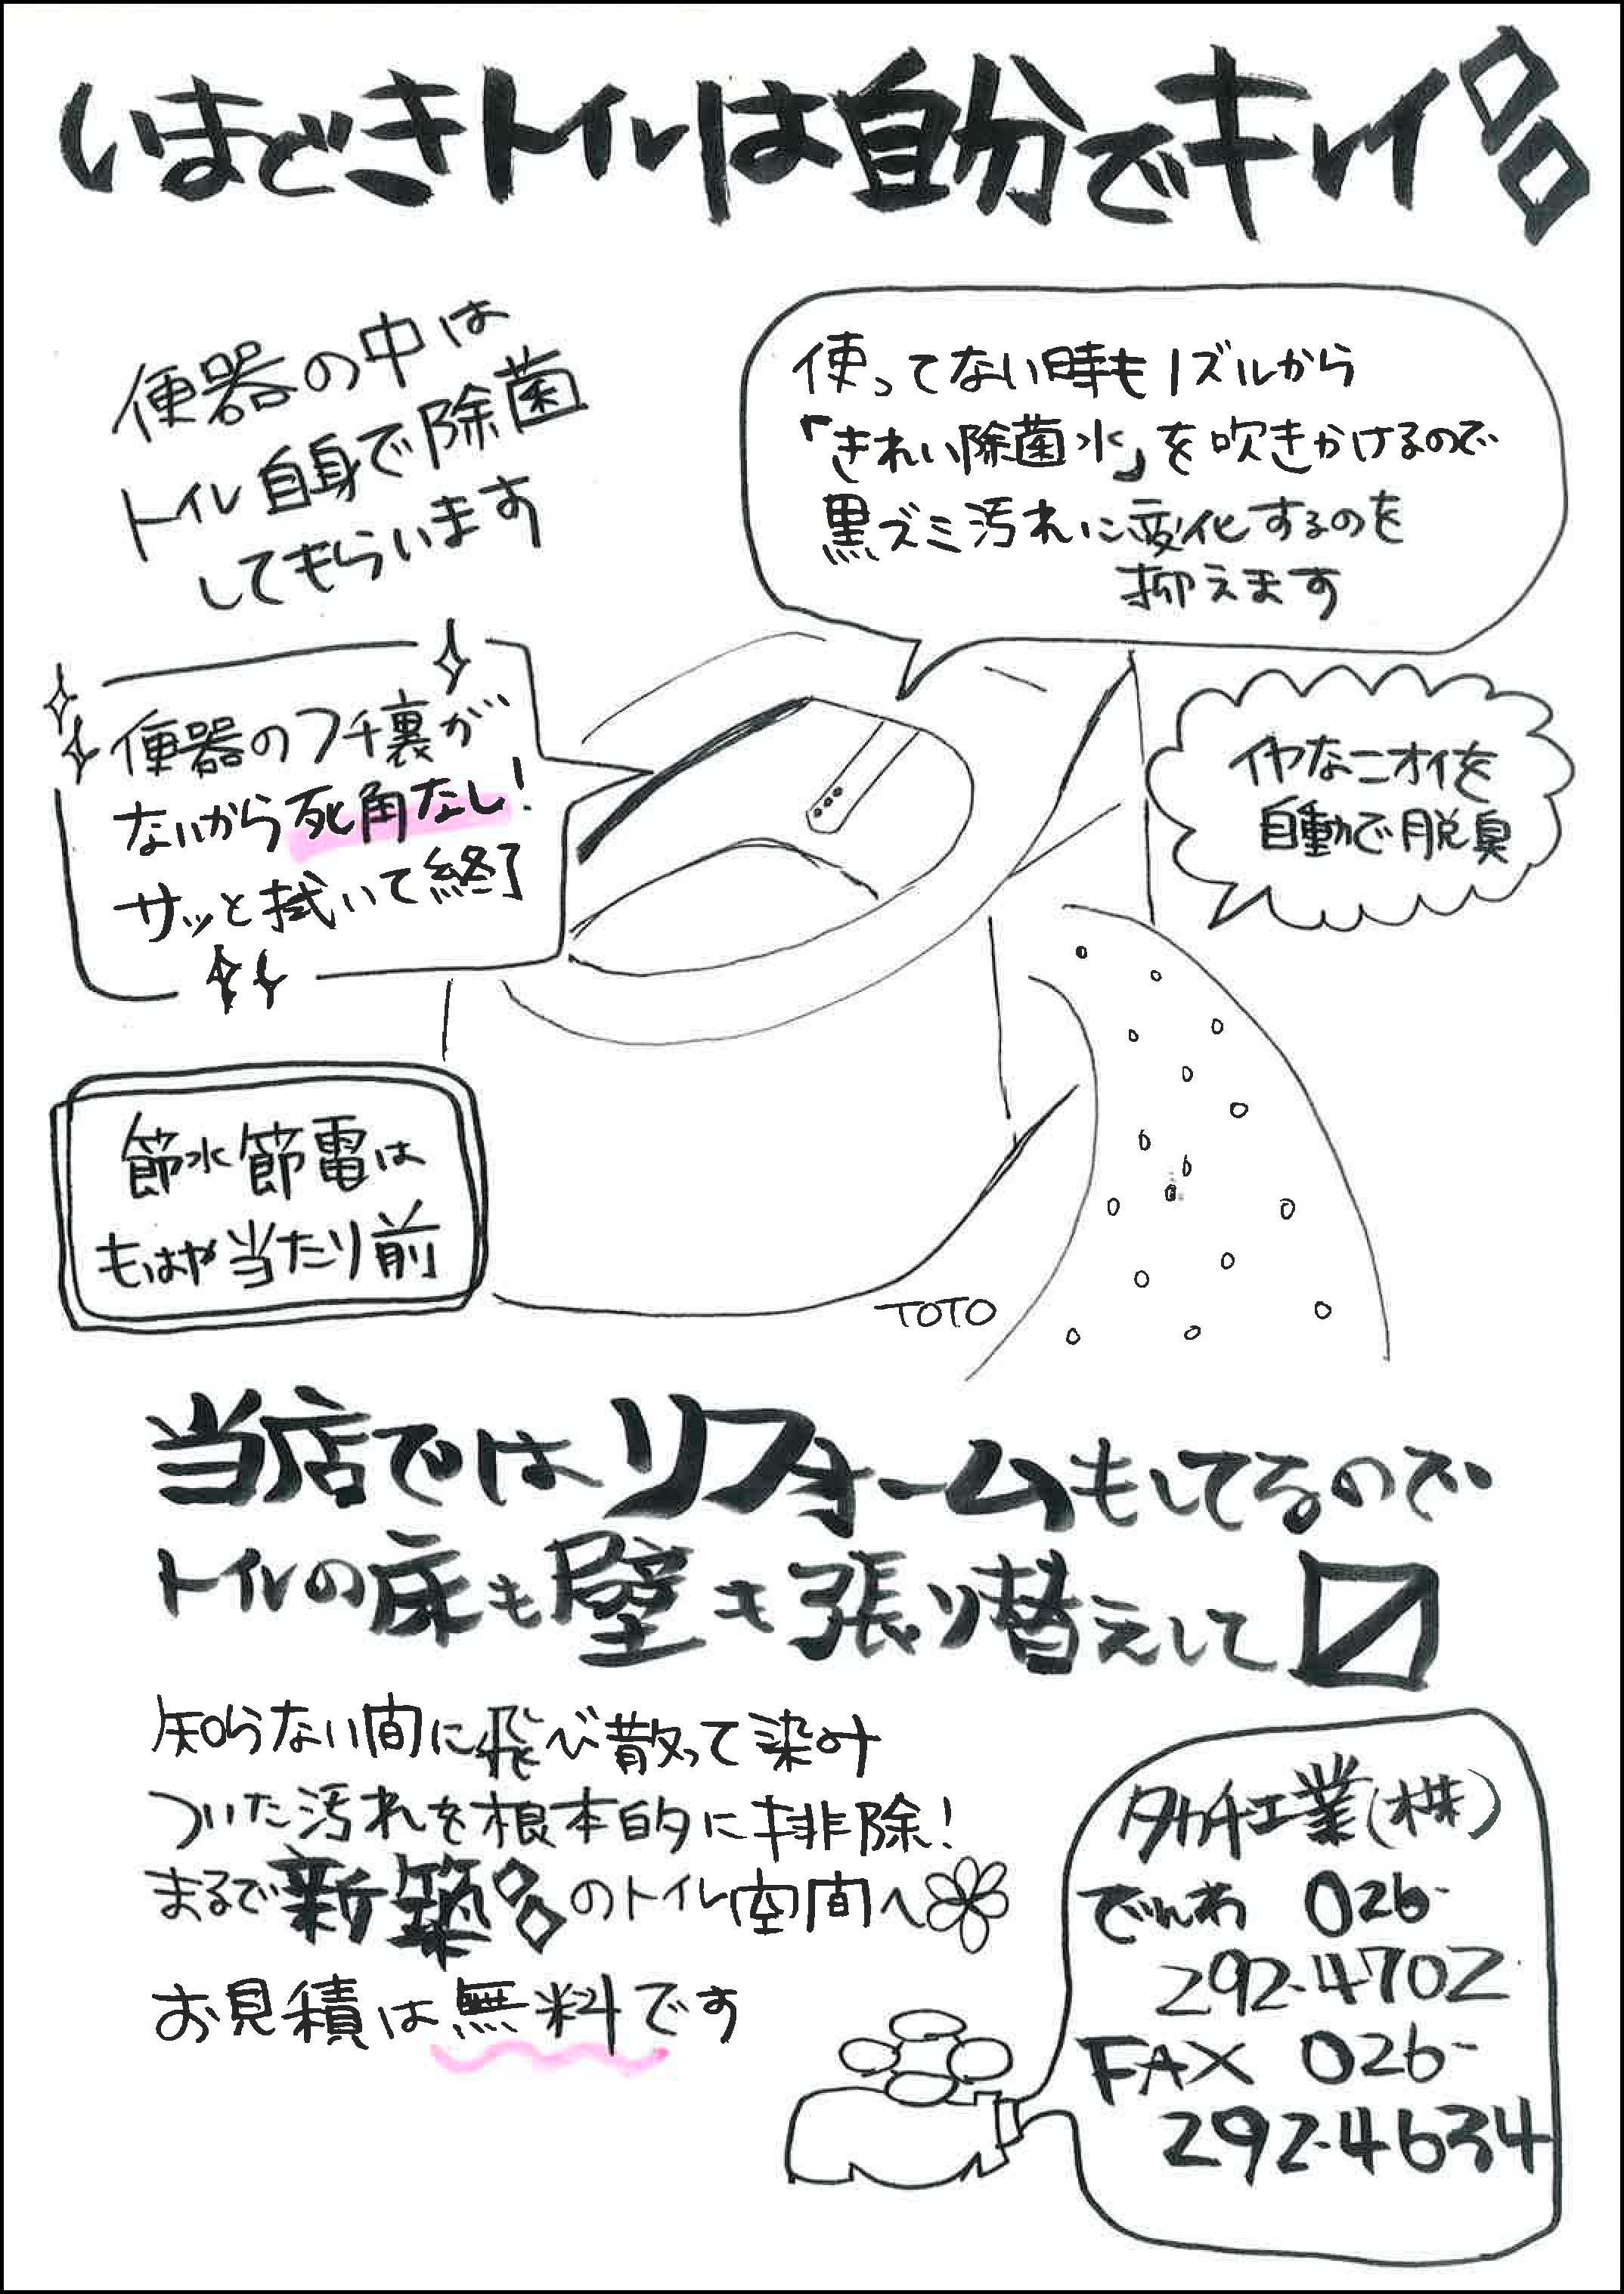 いまどきトイレは自分でキレイ
便器の中は
トイレ自身で除菌
してもらいます
使ってない時もノズルから
「きれい除菌水」を吹きかけるので
黒ズミ汚れに変化するのを
抑えます
便器のフチ裏が
ないから死角なし!
サッと拭いて終了
イヤなニオイを
自動で脱臭
節水節電は
もはや当たり前
TOTO
当店ではリフォームもしてるので
トイレの床も壁も張り替えして〼
知らない間に飛び散って染み
ついた汚れを根本的に排除!
まるで新築のトイレ空間へ
お見積は無料です
タカチ工業(株)
でんわ 026-
292-4702
FAX 026-
292-4634